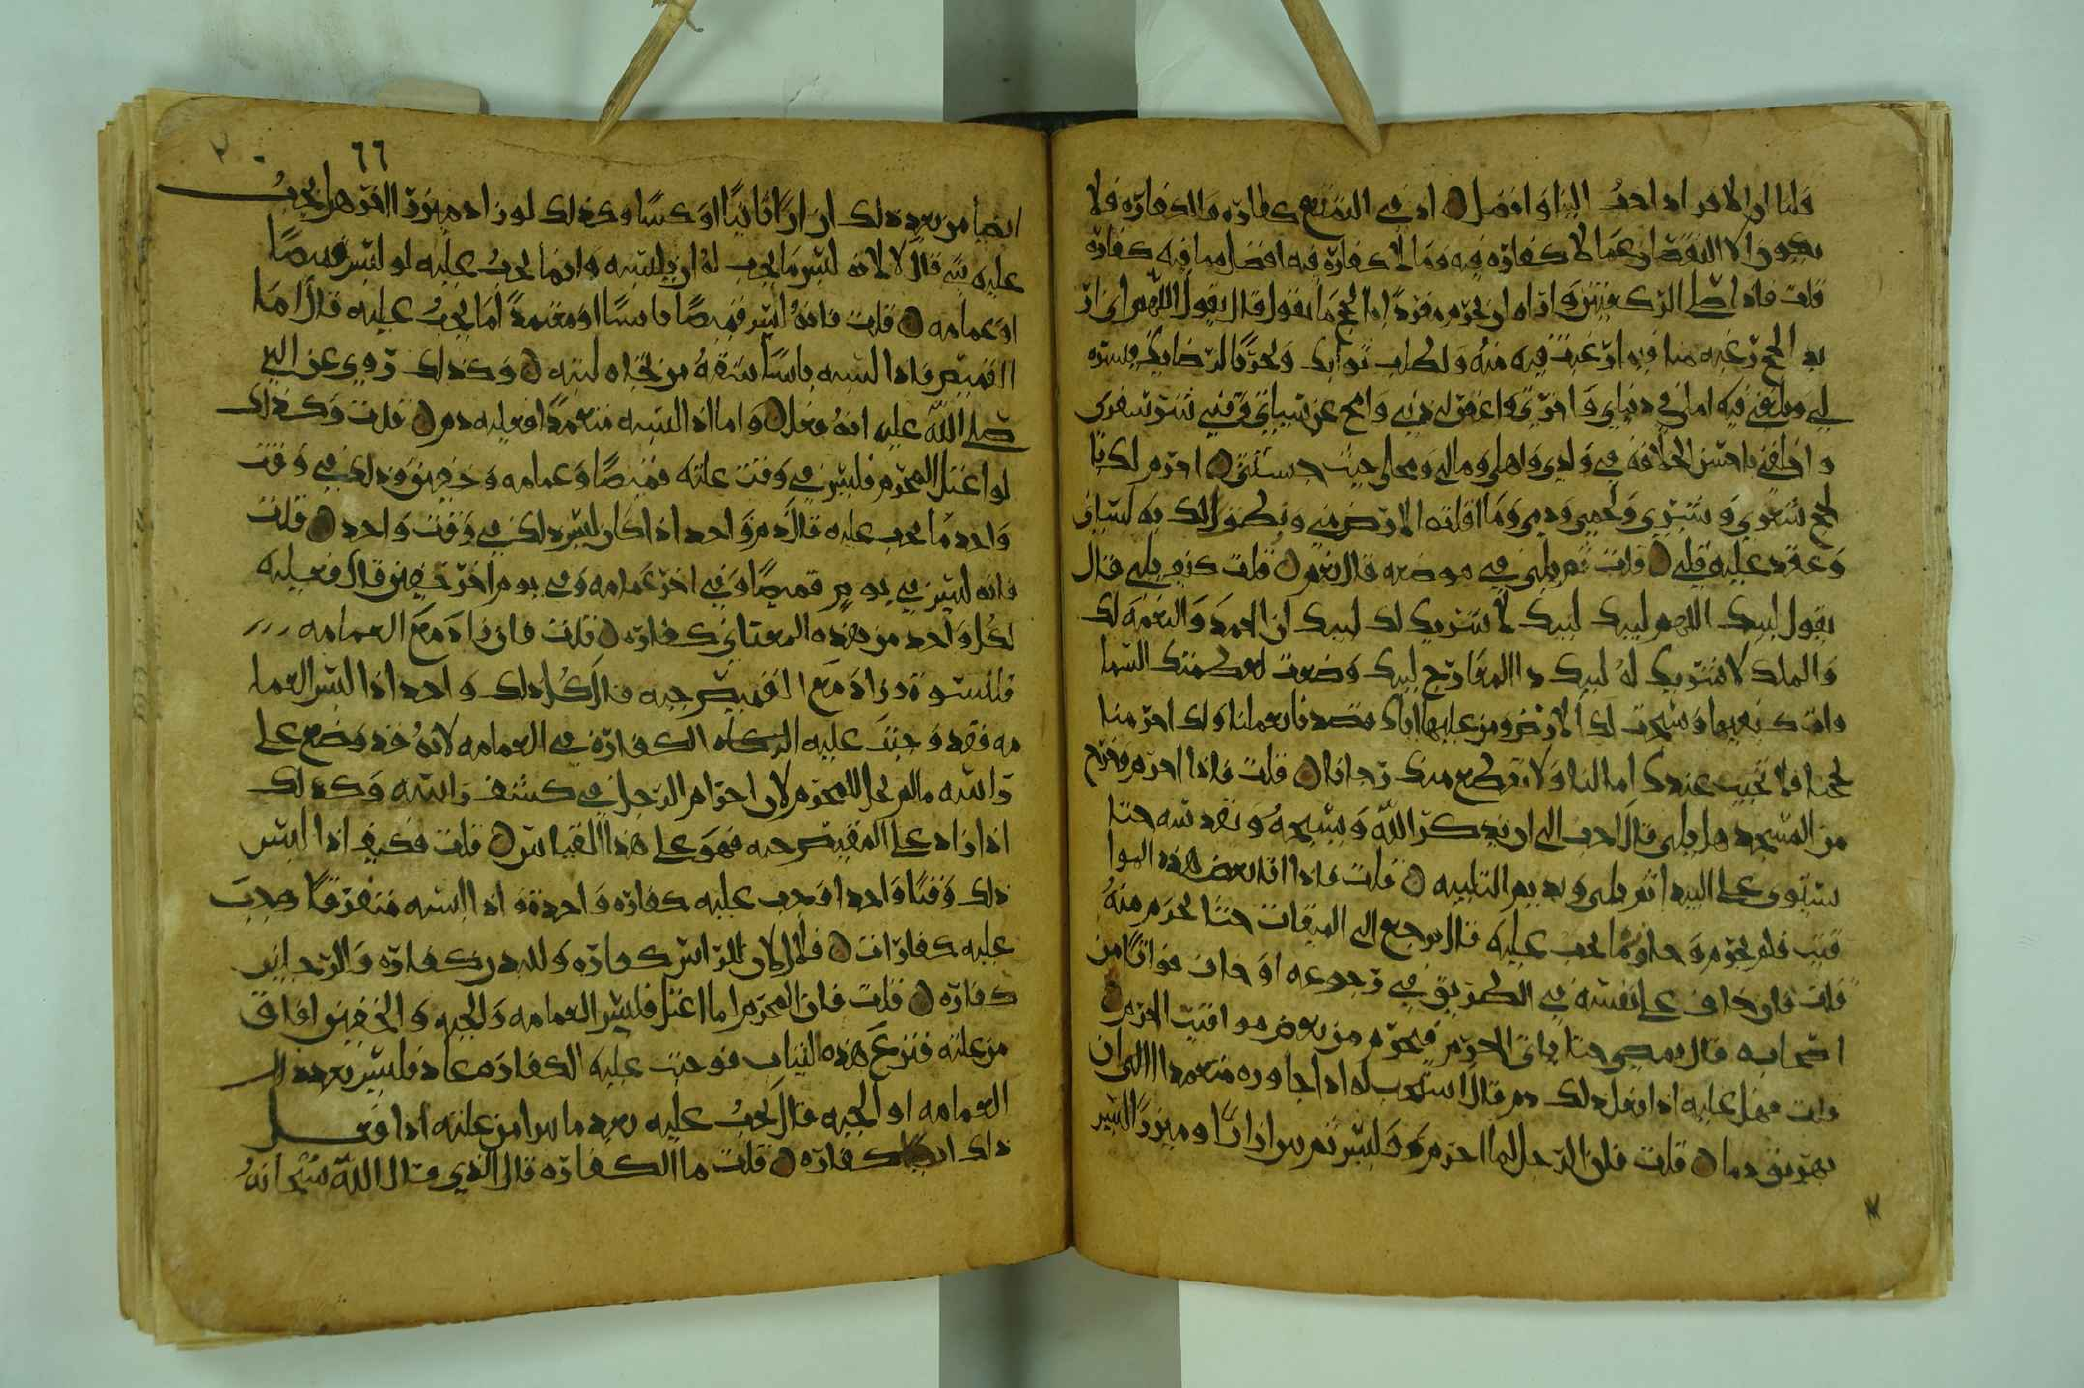 قلنا ان الافراد احب الينا وافضل اذ في التمتع كفارة والكفارة فلا
يكون الا لنقصان عما لا كفارة فيه وما لا كفارة فيه افضل مما فيه كفارة
قلت فاذا صلى الركعتين واراد ان يحرم مفردا للحج ما يقول قال يقول اللهم اني اريد
الحج رغبة منا فيما رغبت فيه منه ولطلب ثوابك وتحريا لرضاك فيسره
لي وبلغني فيه املي في دنياي واخرتي واغفر لي ذنبي وامح عن سياتي وقني شر سفري
واخلفني باحسن الخلافة في ولدي واهلي ومالي ومحلي حيث حبستني احرم لك با
لحج شعري وبشري ولحمي ودمي وما اقلته الارض مني ونطق لك به لساني
وعقد عليه قلبي قلت ثم يلبي في موضعه قال نعم قلت كيف يلبي قال
يقول لبيك اللهم لبيك لبيك لا شريك لك لبيك ان الحمد والنعمة لك
والملك لا شريك له لبيك ذا المعارج لبيك وضعت لعظمتك السما
وات كنفيها وسبحت لك الارض ومن عليها اياك قصدنا بعملنا ولك احرمنا
لحجنا فلا تخيب عندك امالنا ولا تقطع منك رجانا قلت فاذا احرم فخرج
من المسجد هل يلبي قال احب الي ان يذكر الله ويسبحه ويقدسه حتا
يستوي على البيدا ثم يلبي ويديم التلبية قلت فاذا اتا بعض هذه الموا
قيت فلم يحرم وجاوزها ما يجب عليه قال يرجع الى الميقات حتا يحرم منه
قلت فان خاف على نفسه في الطريق في رجوعه او خاف فواتا من
اصحابه قال يمضي حتا ياتي الحرم فيحرم من بعض مواقيت الحرم
قلت فهل عليه اذا فعل ذلك دم قال استحب له اذا جاوره متعمدا الى ان
يهريق دما قلت فان الرجل لما احرم ولبس ثم برا ازارا وميزرا لبس
ايضا من بعد ذلك ازارا ثانيا او كسا وكذلك لو زاد ميزر الفر هل يجب
عليه شي قال لا لانه لبس ما يجب له ان يلبسه وانما يجب عليه لو لبس قميصا
او عمامه قلت فانه لبس قميصا ناسيا او متعمدا لما يجب عليه قال اما
القميص فاذا لبسه ناسيا شقه من تجاه لبته وكذلك روي عن النبي
صلى الله عليه انه فعل واما اذا لبسه متعمدا فعليه دم قلت وكذلك
لو اعتل المحرم فلبس في وقت علته قميصا وعمامه وخفين وذلك في وقت
واحد ما يجب عليه قال دم واحد اذا كان لبس ذلك في وقت واحد قلت
فانه لبس في يوم قميصا وفي اخر عمامه وفي يوم اخر خفين قال فعليه
لكل واحد من هذه المعاني كفارة قلت فان زاد مع العمامه
قلنسوة وزاد مع القميص جبه قال كل ذلك واحد اذا لبس العما
مه فقد وجبت عليه الكفارة في العمامه لانه قد وضع على
راسه مالم يحل للمحرم لان احرام الرجل في كشف راسه وكذلك
اذا زاد على القميص جبه فهو على هذا القياس قلت فكيف اذا لبس
ذلك وقتا واحدا وجب عليه كفارة واحدة واذا لبسه متفرقا وجب
عليه كفارات قال لان للراس كفارة وللبدن كفارة والرجلين
كفارة قلت فان المحرم لما اعتل فلبس العمامه والجبه والخفين افاق
من علته فنزع هذه الثياب فوجبت عليه الكفارة عاد فلبس بعد ذلك
العمامه او الجبه قال يجب عليه بعد ما برا من علته اذا فعل
ذلك ايضا كفارة قلت ما الكفارة قال الذي قال الله سبحانه